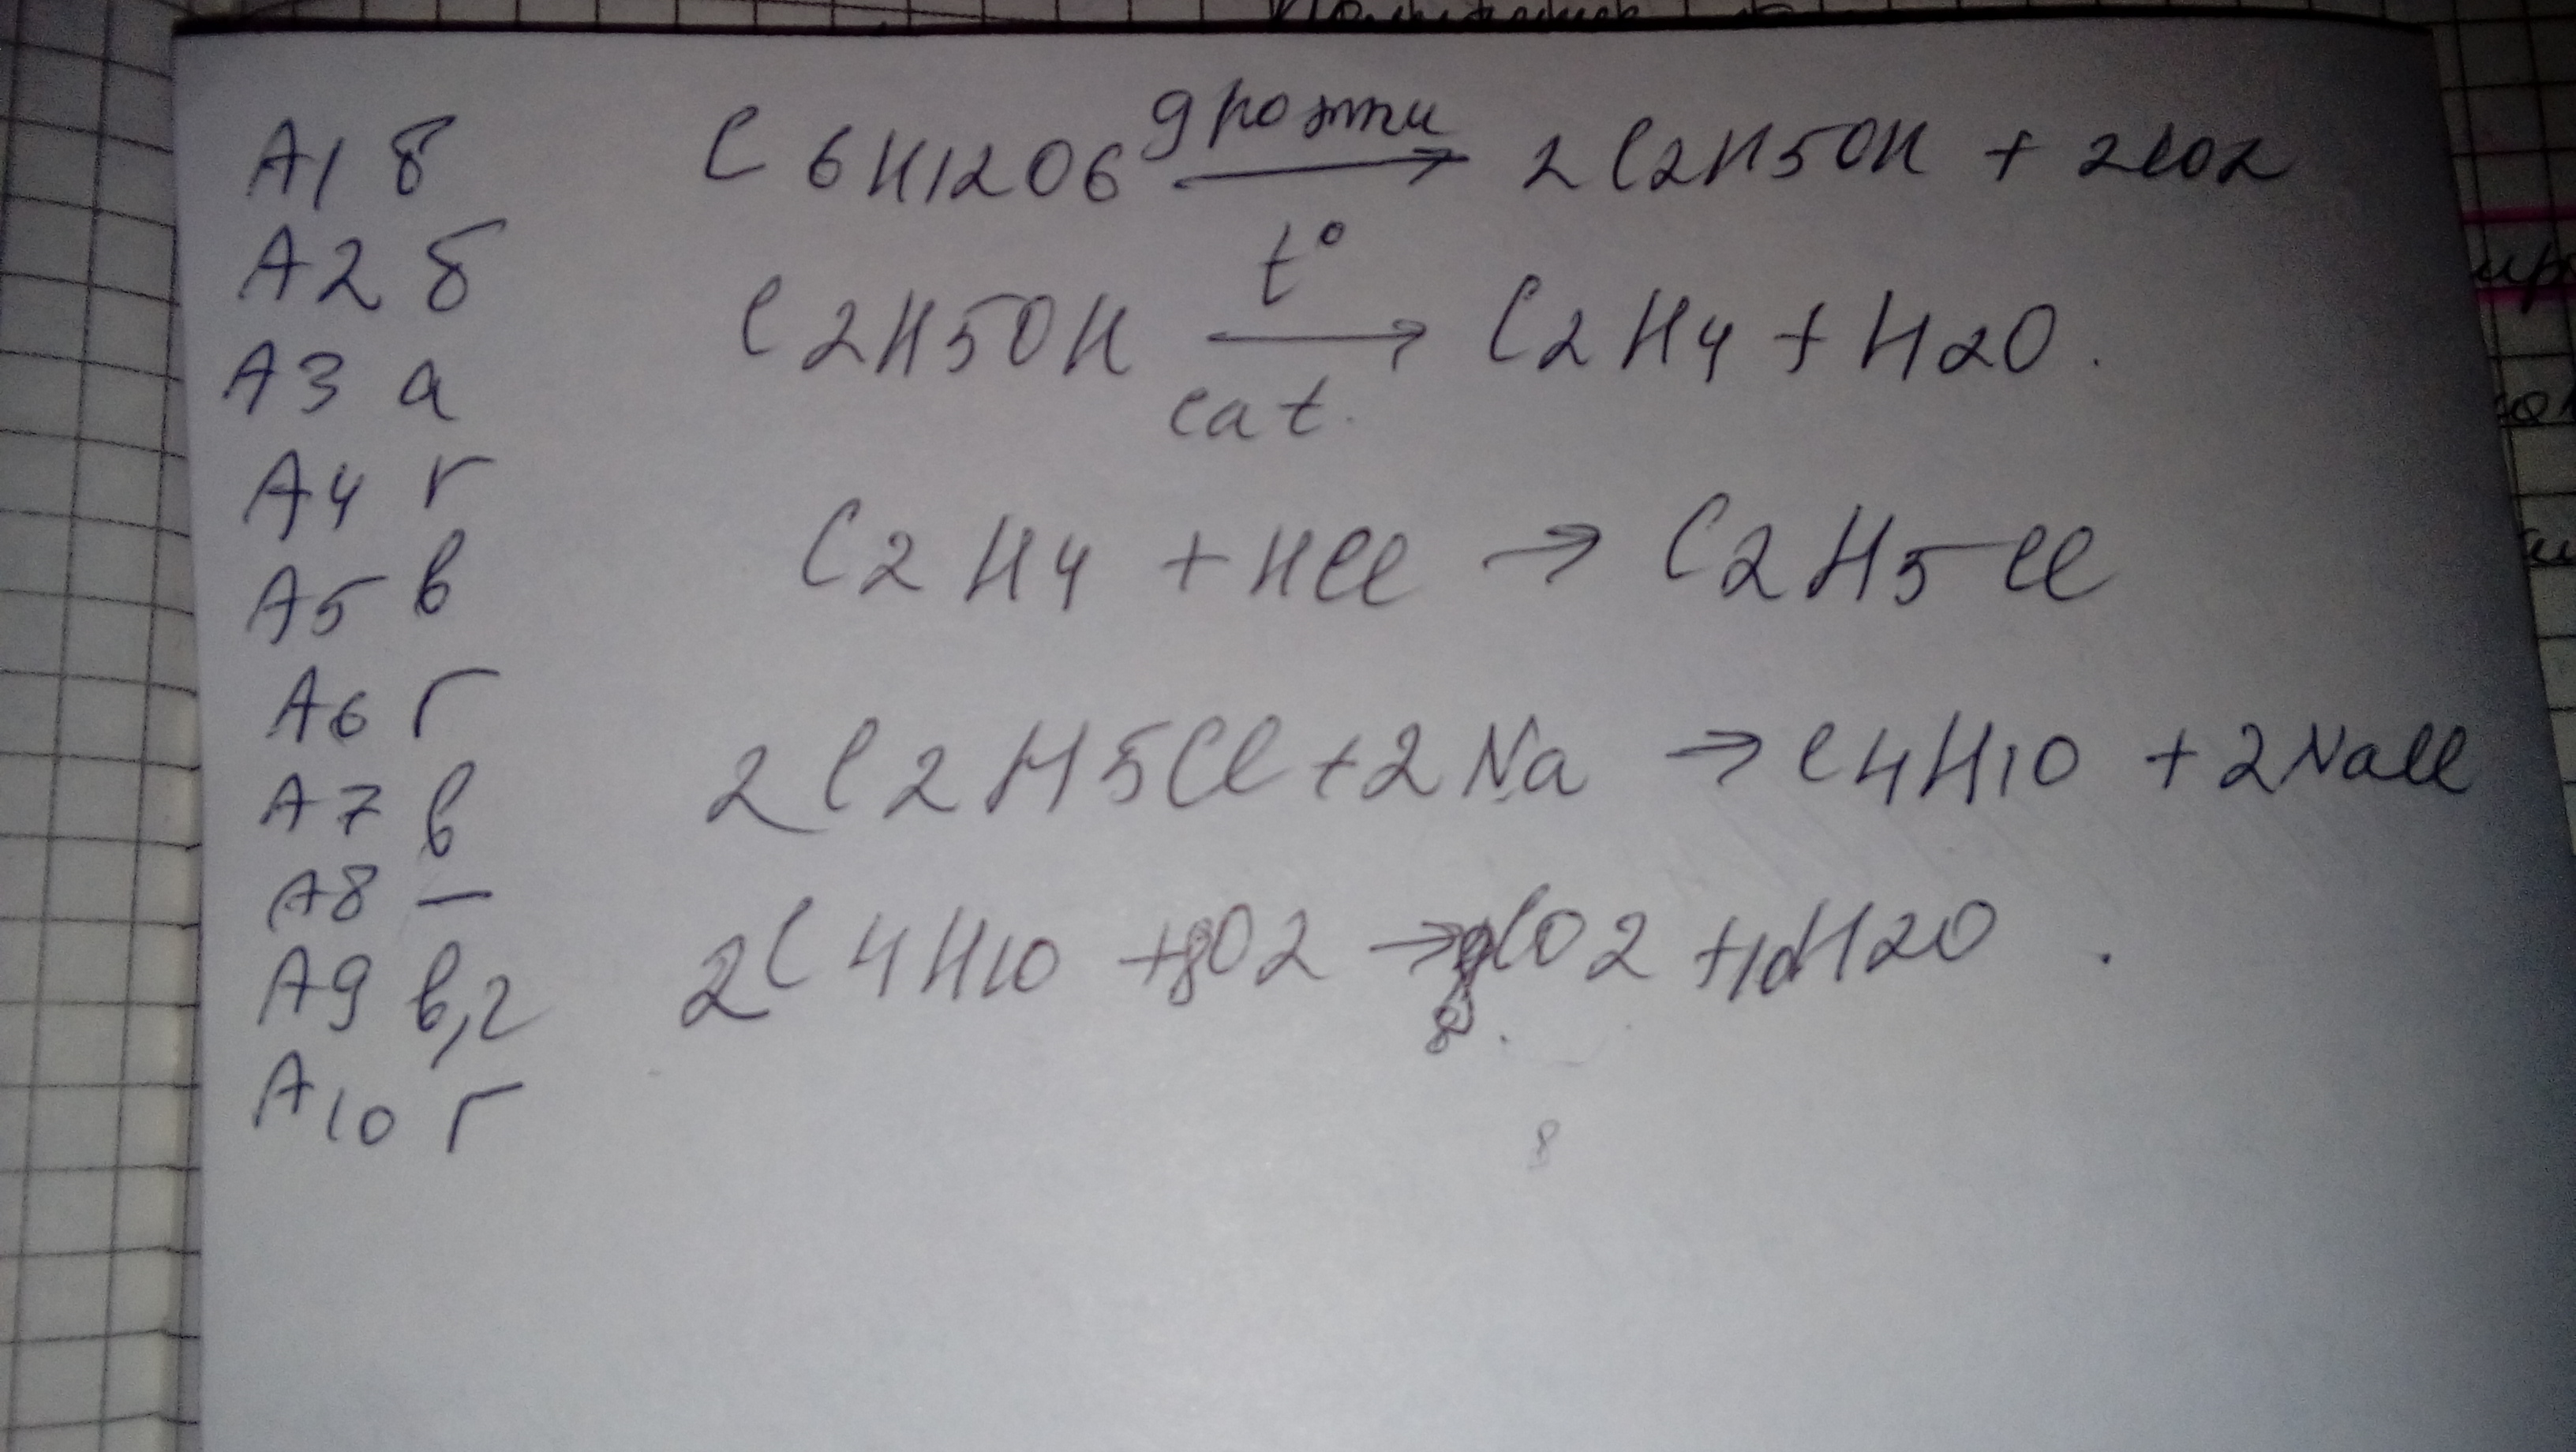 A1 б
A2 б
A3 а
A4 г
A5 в
A6 г
A7 в
A8 —
A9 в,г
A10 г
C6H12O6 дрожжи → 2C2H5OH + 2CO2
t°
C2H5OH → C2H4 + H2O.
cat.
C2H4 + HCl → C2H5Cl
2C2H5Cl + 2Na → C4H10 + 2NaCl
2C4H10 + O2 → CO2 + 10H2O.
8.
8